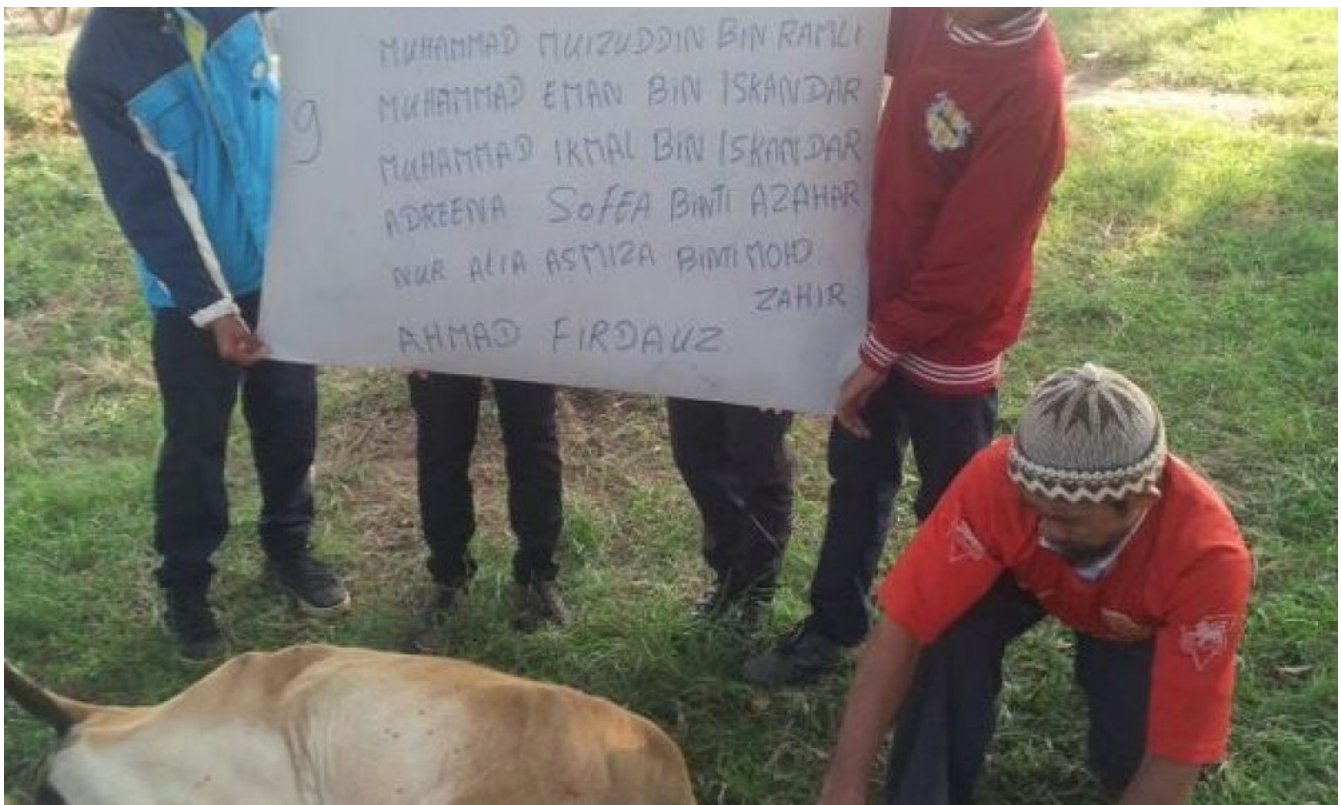 MUHAMMAD MUIZUDDIN BIN RAMLI
9
MUHAMMAD EMAN BIN ISKANDAR
MUHAMMAD IKMAL BIN ISKANDAR
ADREENA SOFEA BINTI AZAHAR
NUR ALIA ASMIZA BINTI MOHD
ZAHIR
AHMAD FIRDAUZ